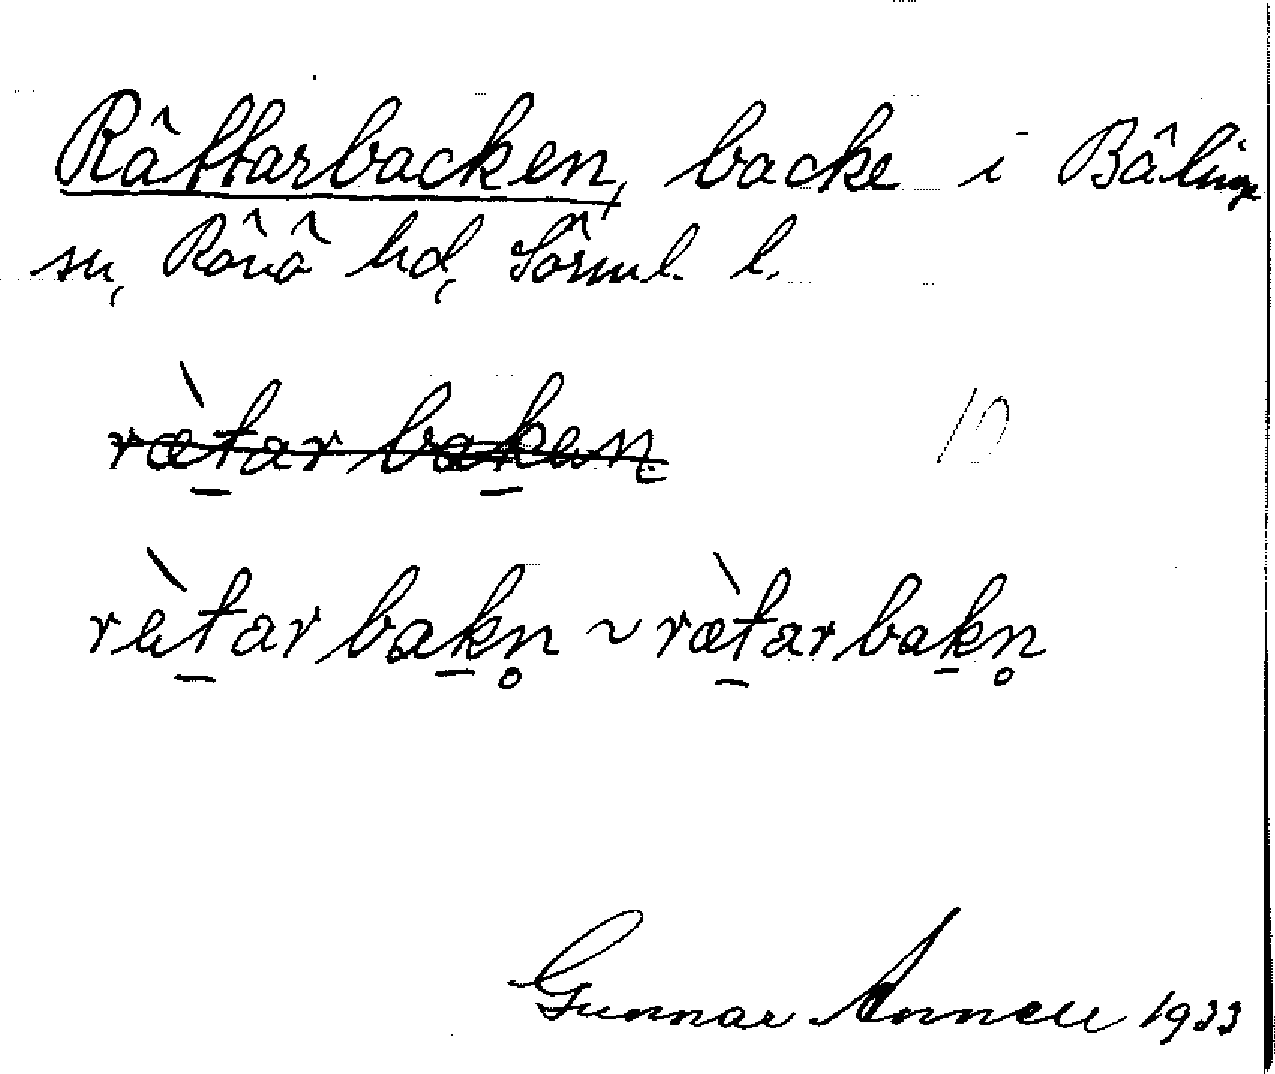 Rättarbacken, backe i Bälinge
sn, Rönö hd, Sörml. l.
rætar baken
10
rètar bakn ~ rætar bakn
Gunnar Annell 1933